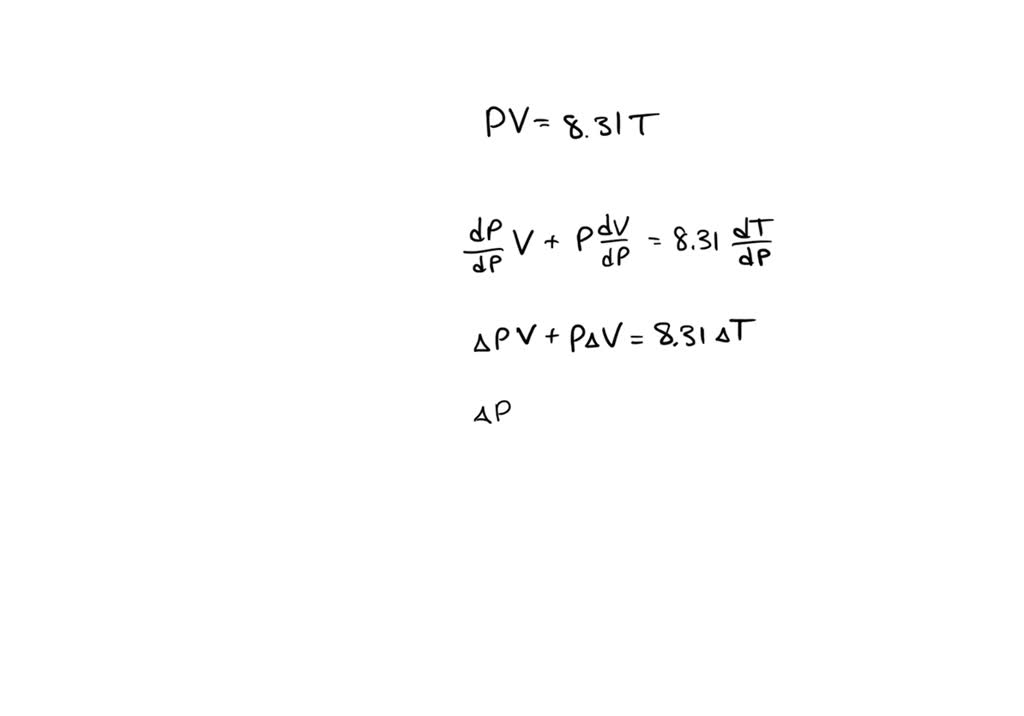 PV = 8.31T
dP/dP V + P dV/dP = 8.31 dT/dP
ΔPV + PΔV = 8.31 ΔT
ΔP